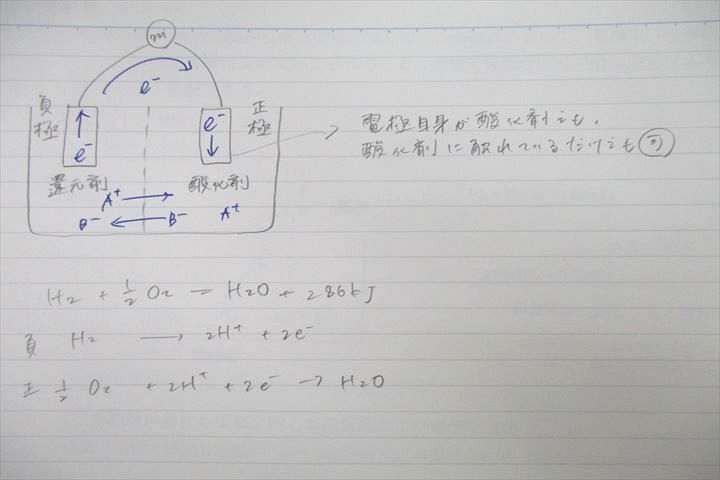 m
e⁻
負極
正極
e⁻
e⁻
還元剤
酸化剤
A⁺
B⁻
B⁻
A⁺
電極自身が酸化剤でも、
酸化剤に触れているだけでも可
H₂ + 1/2 O₂ = H₂O + 286kJ
負 H₂ → 2H⁺ + 2e⁻
正 1/2 O₂ + 2H⁺ + 2e⁻ → H₂O